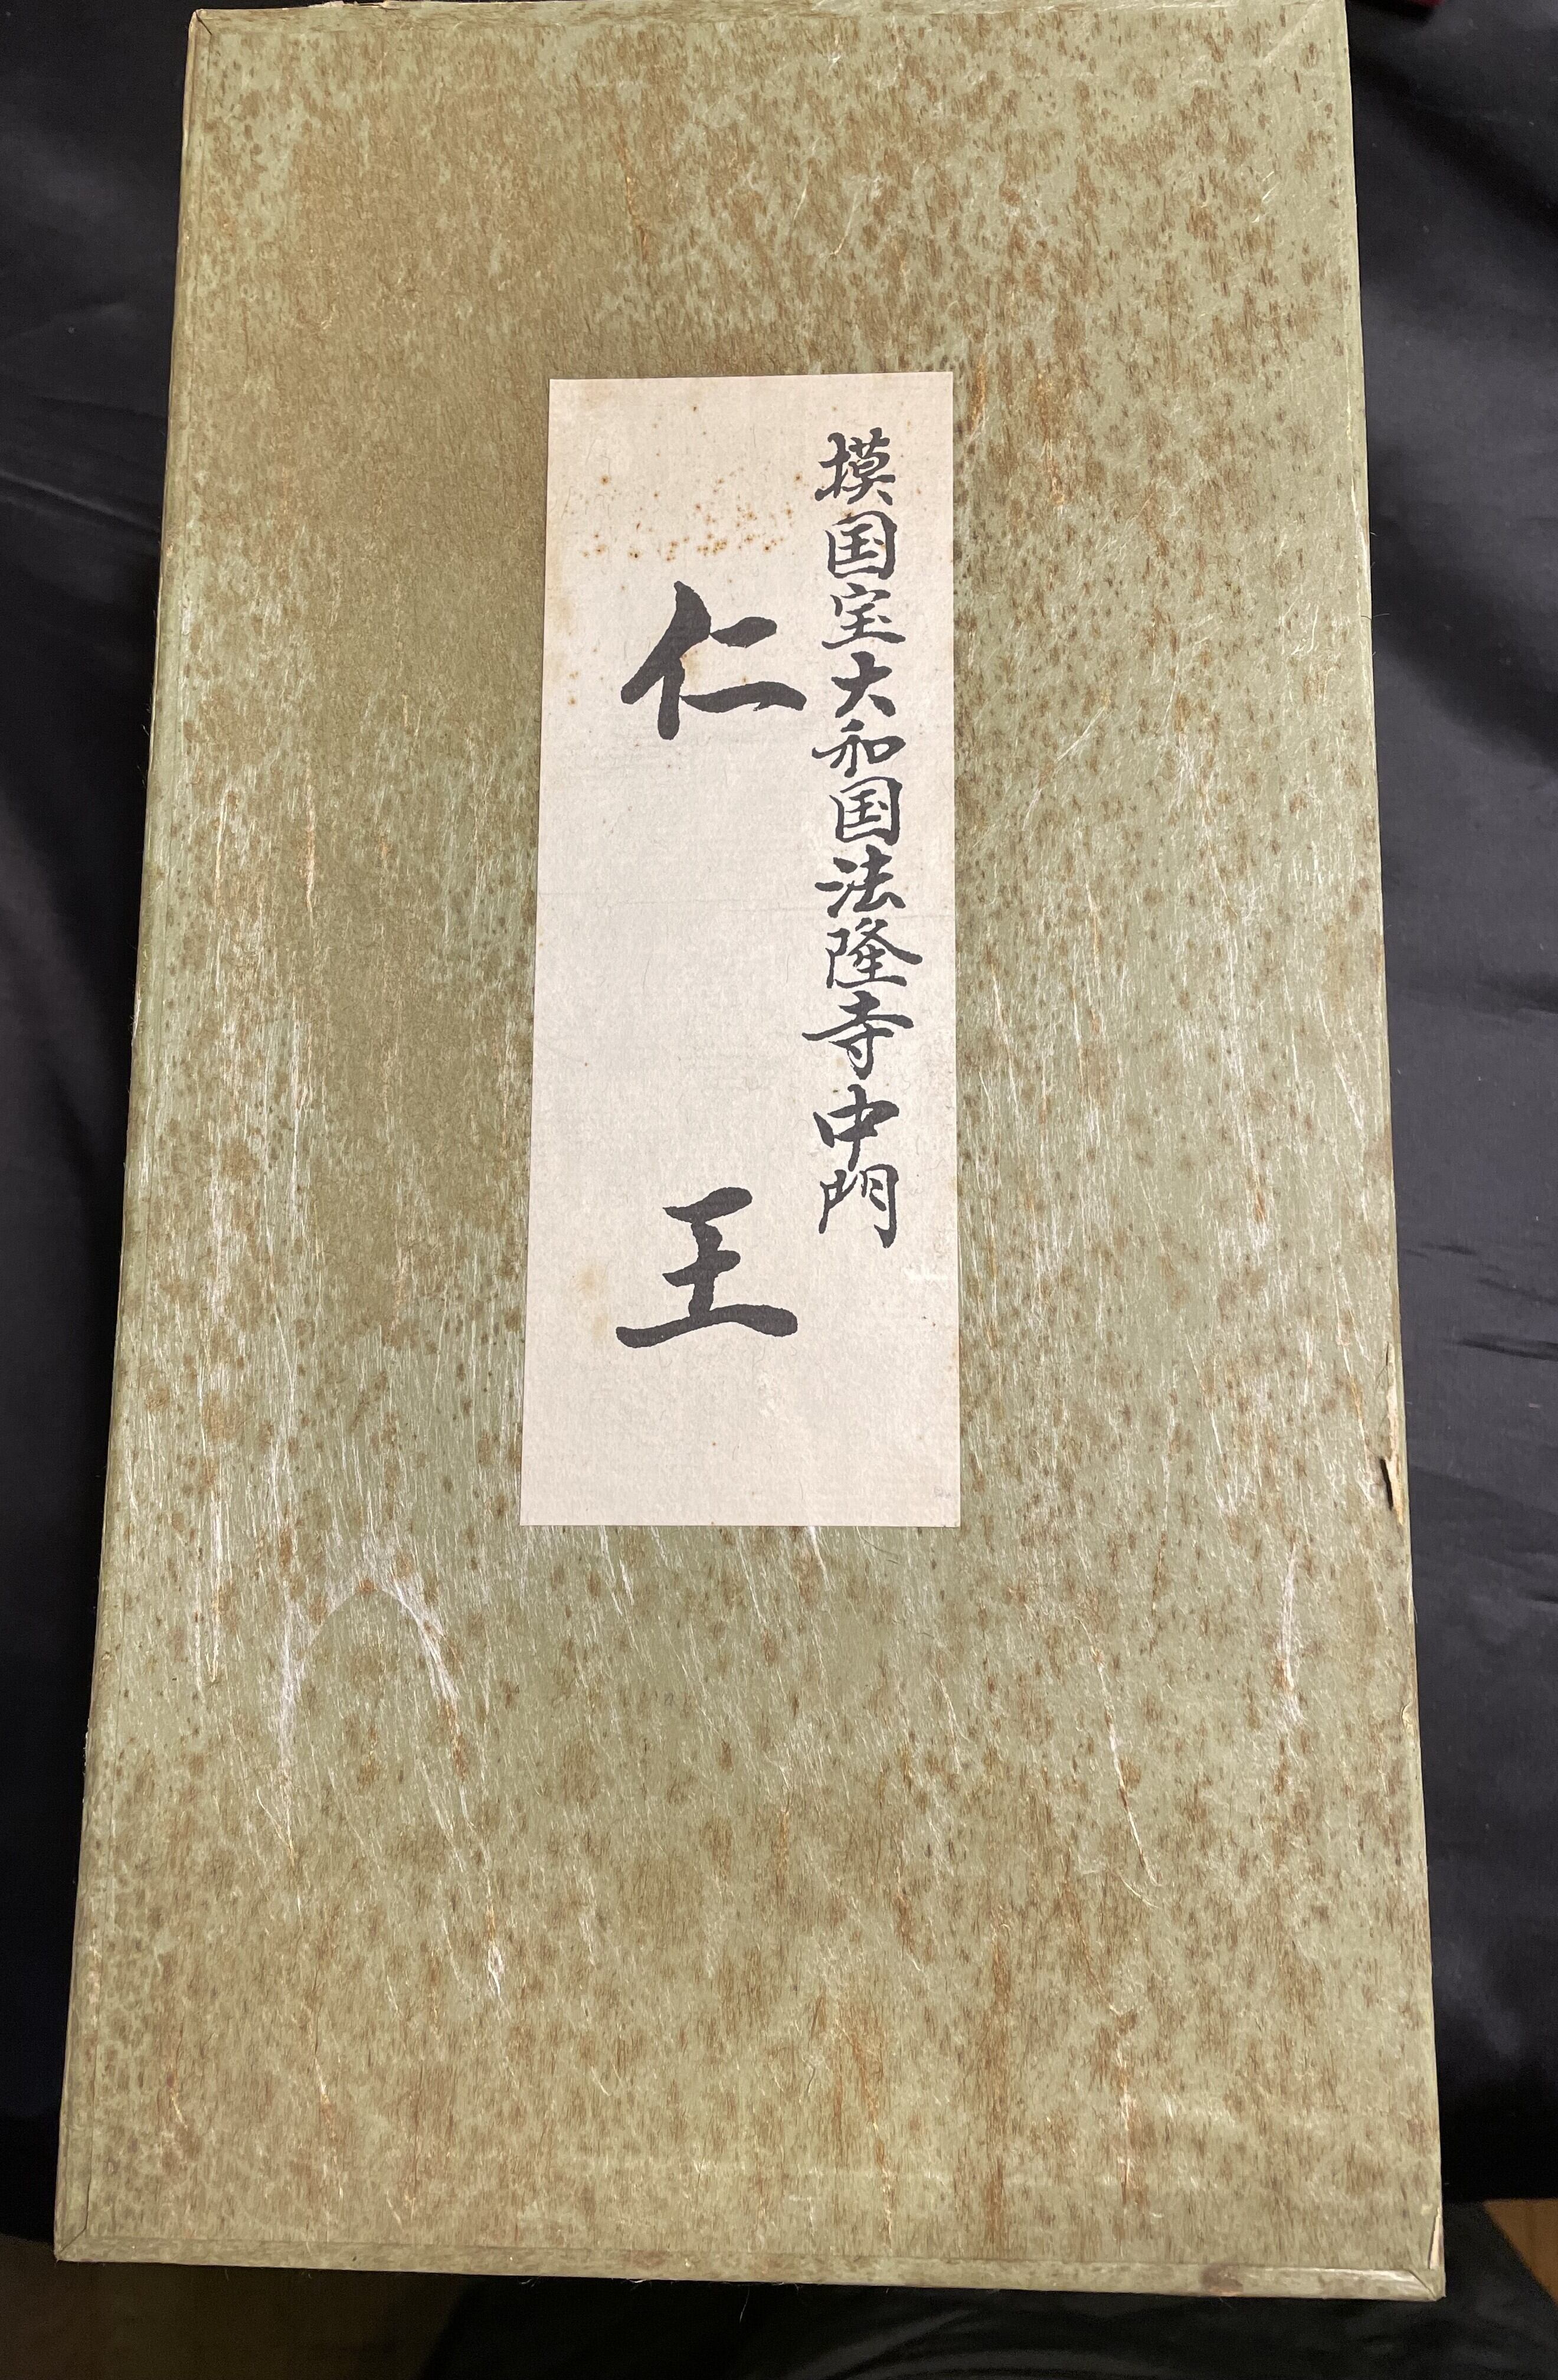 摸国宝大和国法隆寺中門
仁王